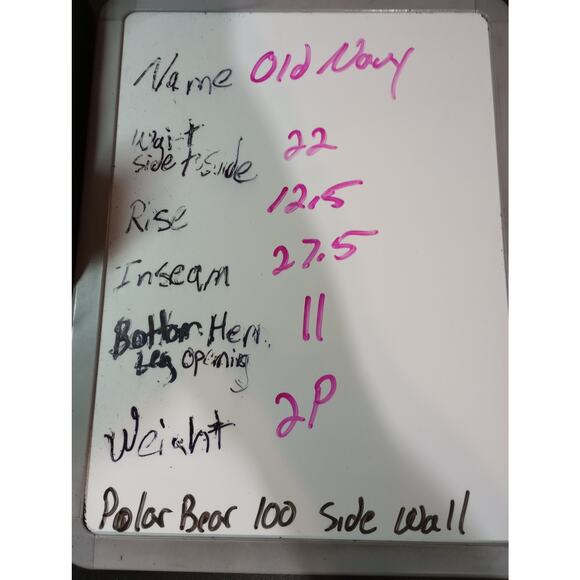 Name Old Navy
Waist side to side 22
Rise 12.5
Inseam 27.5
Bottom Hem 11
Leg opening
Weight 2P
Polar Bear 100 Side Wall